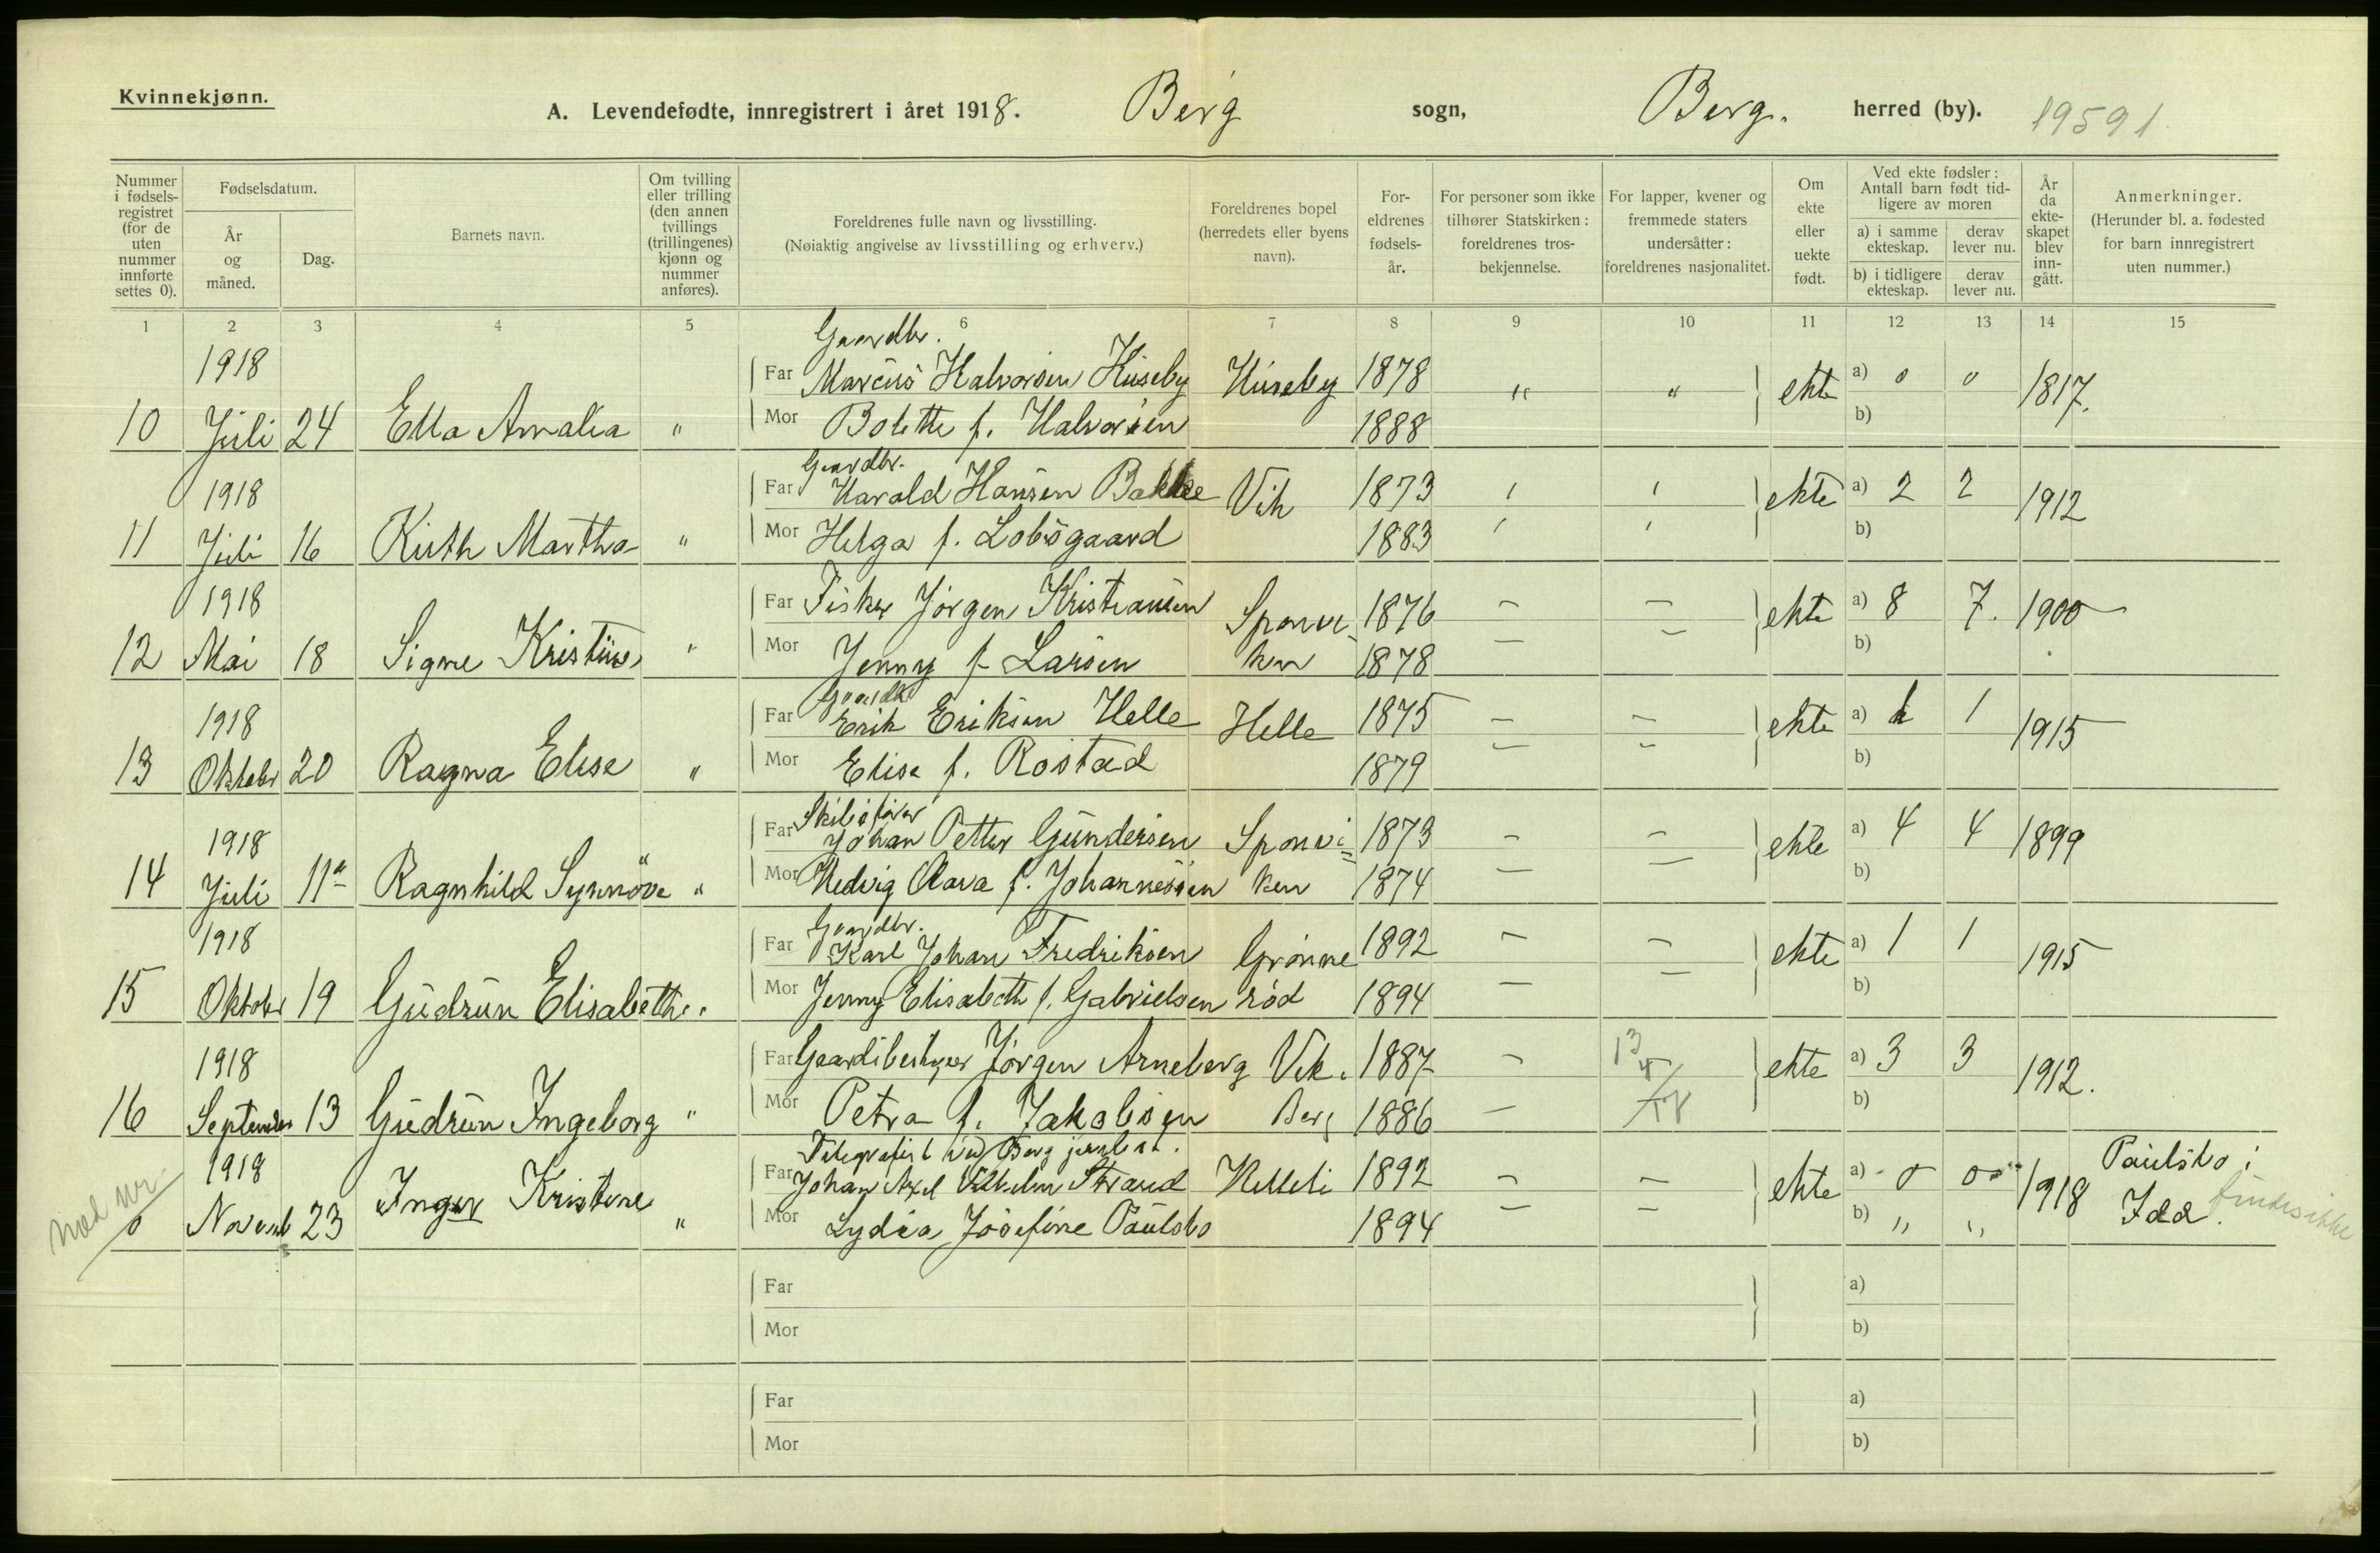 Kvinnekjønn.
A. Levendefødte, innregistrert i året 1918. Berg sogn, Berg. herred (by). 19591
Nummer i fødselsregistret (for de uten nummer innførte settes 0).
Fødselsdatum.
År og måned.
Dag.
Barnets navn.
Om tvilling eller trilling (den annen tvillings (trillingenes) kjønn og nummer anføres).
Foreldrenes fulle navn og livsstilling.
(Nøiaktig angivelse av livsstilling og erhverv.)
Foreldrenes bopel (herredets eller byens navn).
Foreldrenes fødselsår.
For personer som ikke tilhører Statskirken: foreldrenes trosbekjennelse.
For lapper, kvener og fremmede staters undersåtter: foreldrenes nasjonalitet.
Om ekte eller uekte født.
Ved ekte fødsler: Antall barn født tidligere av moren
a) i samme ekteskap. derav lever nu.
b) i tidligere ekteskap. derav lever nu.
År da ekteskapet blev inngått.
Anmerkninger.
(Herunder bl. a. fødested for barn innregistrert uten nummer.)
1 2 3 4 5 6 7 8 9 10 11 12 13 14 15
Gaardbr.
1918 Far Marcus Halvorsen Huseby Huseby 1878 " " ekte a) 0 0 1817.
10 Juli 24 Ella Amalia " Mor Bolette f. Halvorsen 1888 b)
Gaardbr.
1918 Far Harald Hansen Bakke Vik 1873 ekte a) 2 2 1912
11 Juli 16 Ruth Martha " Mor Helga f. Lobsgaard 1883 b)
1918 Far Fisker Jørgen Kristiansen Sponvi 1876 – – ekte a) 8 7. 1900
12 Mai 18 Signe Kristine " Mor Jenny f. Larsen ken 1878 – – b)
Gaardbr
1918 Far Erik Eriksen Helle Helle 1875 – – ekte a) 1 1915
13 Oktober 20 Ragna Elise " Mor Elise f. Rostad 1879 – – b)
Skibsfører
1918 Far Johan Petter Gundersen Sponvi= 1873 – – ekte a) 4 4 1899
14 Juli 11 Ragnhild Synnøve " Mor Hedvig Olava f. Johannessen ken 1874 – – b)
Gaardbr.
1918 Far Karl Johan Fredriksen Grønne 1892 – – ekte a) 1 1 1915
15 Oktober 19 Gudrun Elisabeth " Mor Jenny Elisabeth f. Gabrielsen rød 1894 – – b)
1918 Far Gaardsbestyrer Jørgen Arneberg Vik. 1887 – 13 ekte a) 3 3 1912.
16 September 13 Gudrun Ingeborg " Mor Petra f. Jakobsen Berg 1886 – b)
Telegrafist ved Berg jernbst.
1918 Far Johan Axel Vilhelm Strand Helleli 1892 – – ekte a) 0 0 1918 Paulsbo i
0 Novemb 23 Inger Kristine " Mor Lydia Josefine Paulsbo 1894 – – b) " " Idd.
Far a)
Mor b)
Far a)
Mor b)